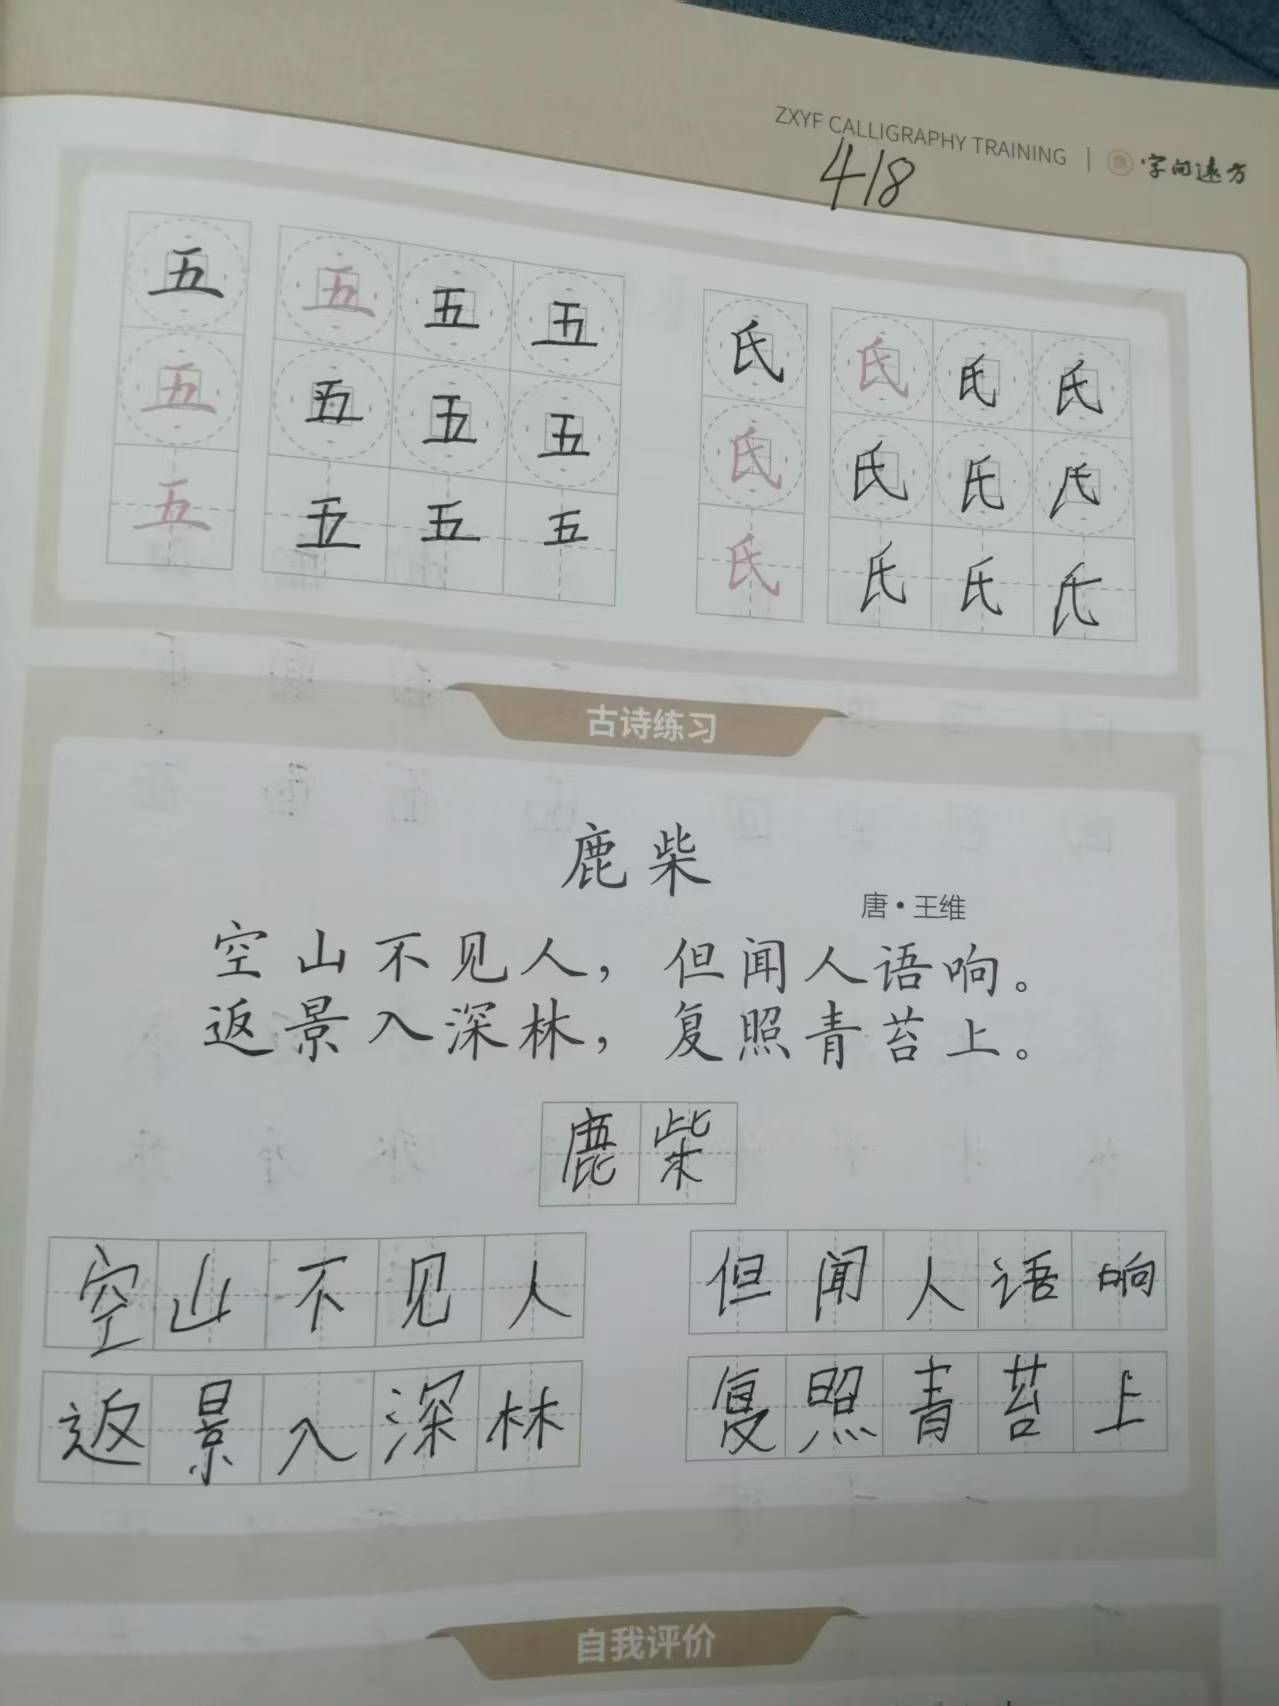 ZXYF CALLIGRAPHY TRAINING | 字间远方
418
五 五 五 五 氏 氏 氏 氏
五 五 五 五 氏 氏 氏 氏
五 五 五 五 氏 氏 氏 氏
古诗练习
鹿柴
唐·王维
空山不见人，但闻人语响。
返景入深林，复照青苔上。
鹿柴
空山不见人 但闻人语响
返景入深林 复照青苔上
自我评价